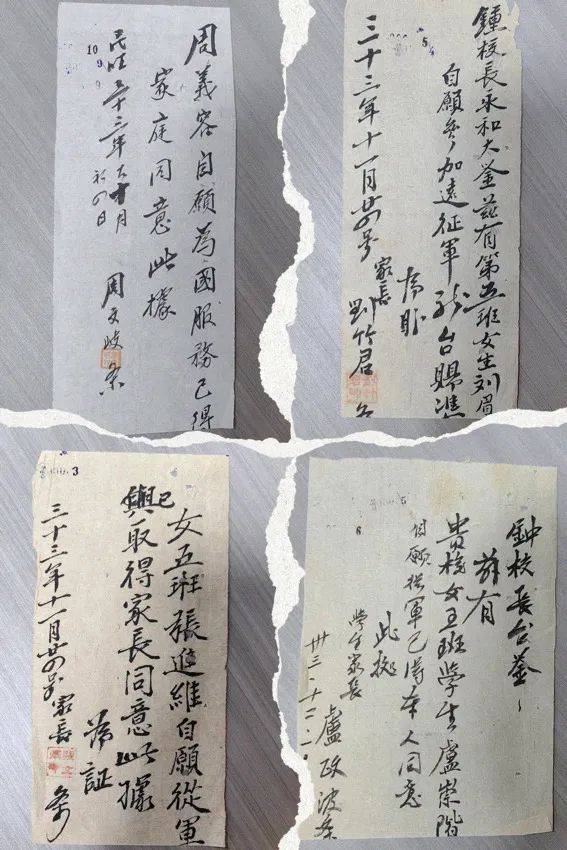 10
9
周義容自願為國服務已得
家庭同意此據
周文岐条
三十三年
5
鍾校長永和大鉴茲有第五班女生刘眉
自願參加遠征軍祈台賜準
為盼
家長劉竹君
三十三年十一月廿四号
3
女五班張進維自願從軍
已
與取得家長同意此據
為証
三十三年十一月廿四号家長
6
鈡校長台鉴
茲有
貴校女五班學生盧崇階
自願從軍已得本人同意
此據
學生家長
盧政波条
卅三·十二·